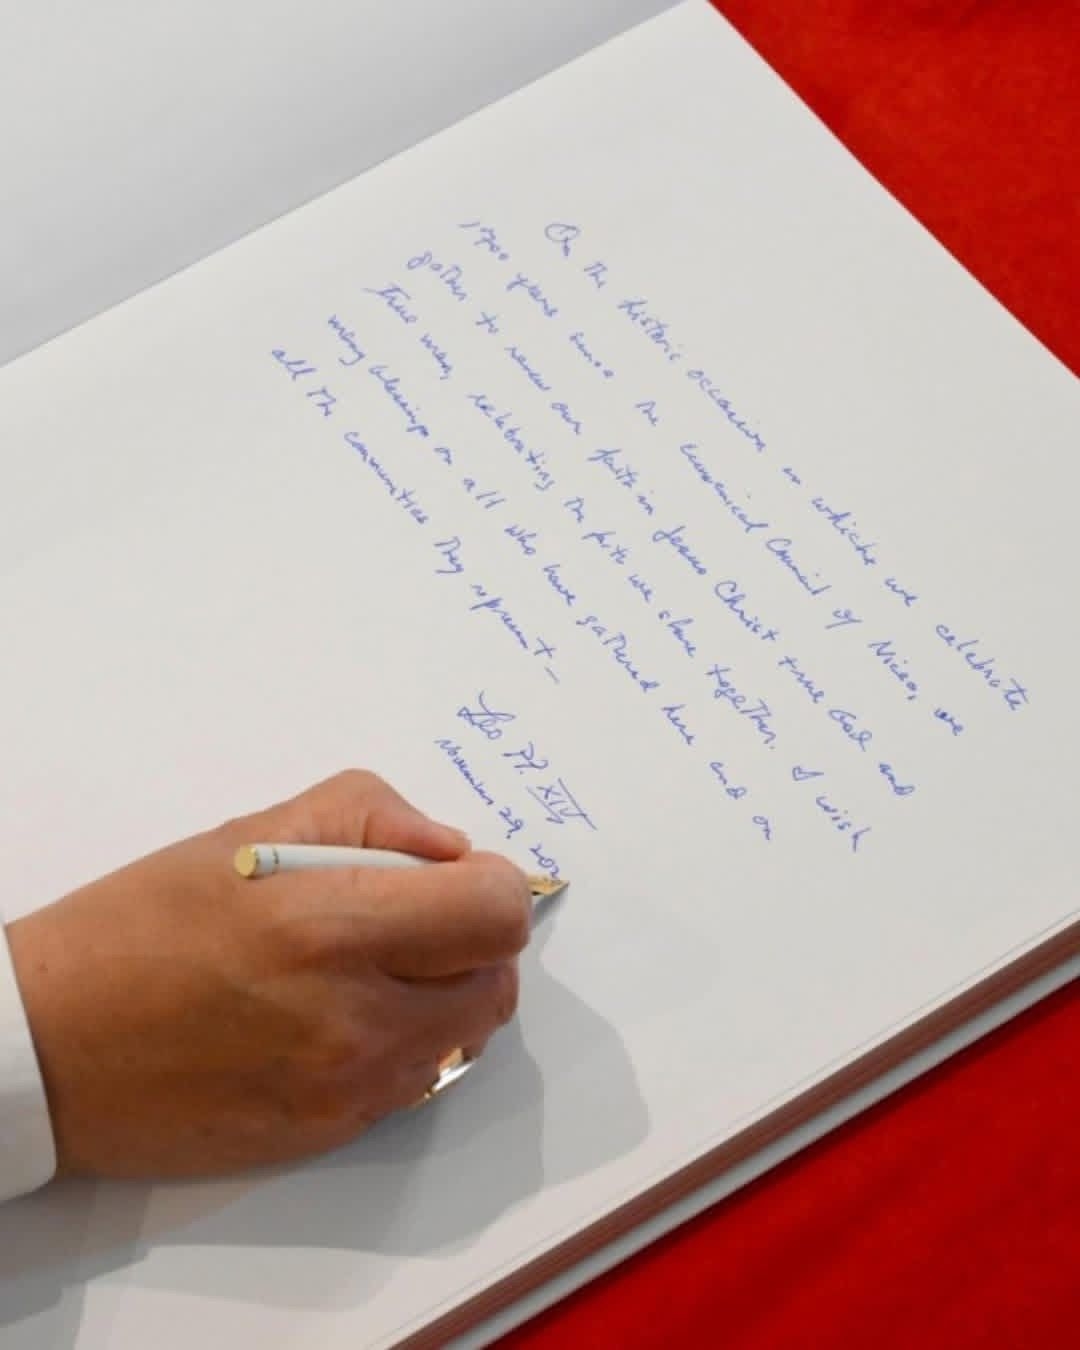 On the historic occasion in which we celebrate
1700 years since the Ecumenical Council of Nicea, we
gather to renew our faith in Jesus Christ true God and
true man, celebrating the faith we share together. I wish
many blessings on all who have gathered here and on
all the communities they represent —
Leo PP. XIV
November 29, 202